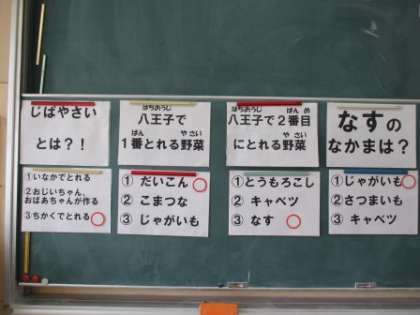 じばやさい
とは?!
はちおうじ
八王子で
ばん やさい
1番とれる野菜
はちおうじ ばんめ
八王子で2番目
やさい
にとれる野菜
なすの
なかまは?
①いなかでとれる
②おじいちゃん、
おばあちゃんが作る
③ちかくでとれる
① だいこん
② こまつな
③ じゃがいも
①とうもろこし
② キャベツ
③ なす
①じゃがいも
②さつまいも
③ キャベツ